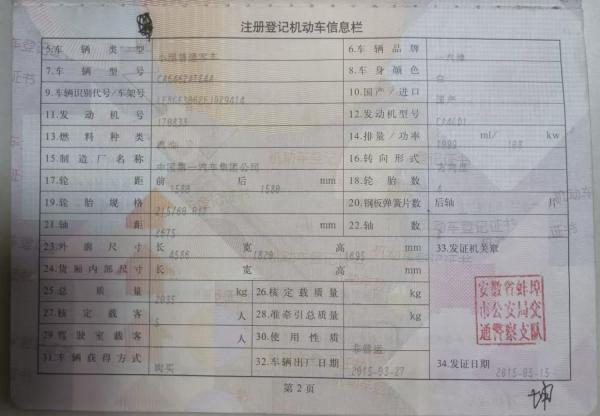 注册登记机动车信息栏
5.车辆类型 小型普通客车 6.车辆品牌
7.车辆型号 8.车身颜色 白
9.车辆识别代号/车架号 10.国产/进口 国产
11.发动机号 12.发动机型号
13.燃料种类 汽油 14.排量/功率 1999 ml/ 108 kw
15.制造厂名称 中国第一汽车集团公司 16.转向形式 方向盘
17.轮距 前 1588 后 1588 mm 18.轮胎数 4
19.轮胎规格 215/60 R17 20.钢板弹簧片数 后轴 片
21.轴距 2675 mm 22.轴数
23.外廓尺寸 长 4586 宽 1820 高 1695 mm 33.发证机关章
24.货厢内部尺寸 长 宽 高 mm
25.总质量 2035 kg 26.核定载质量 kg
27.核定载客 5 人 28.准牵引总质量 kg
29.驾驶室载客 人 30.使用性质 非营运
31.车辆获得方式 购买 32.车辆出厂日期 2015-03-27 34.发证日期 2015-05-15
安徽省蚌埠
市公安局交
通警察支队
第2页